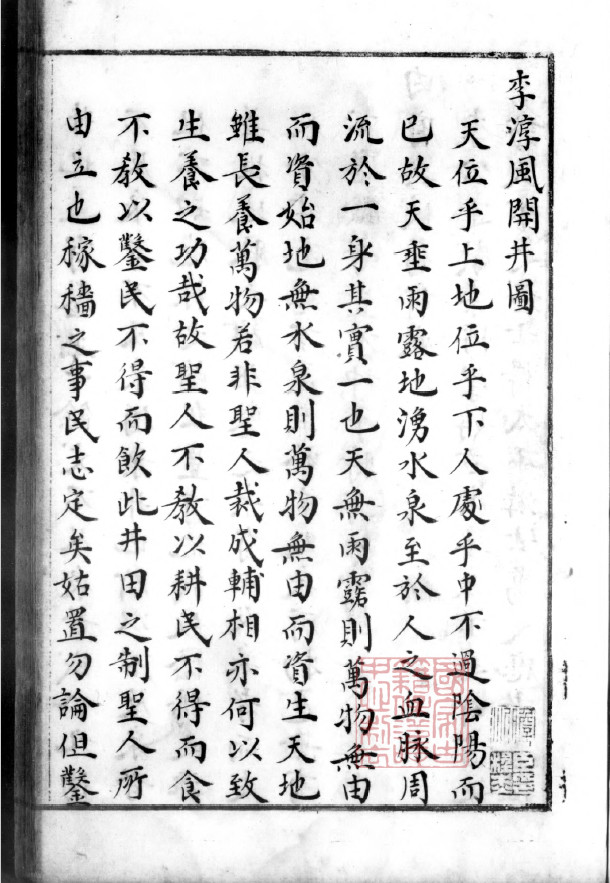 李淳風開井圖
天位乎上地位乎下人處乎中不過陰陽而
已故天垂雨露地湧水泉至於人之血脉周
流於一身其實一也天無雨露則萬物無由
而資始地無水泉則萬物無由而資生天地
雖長養萬物若非聖人裁成輔相亦何以致
生養之功哉故聖人不教以耕民不得而食
不教以鑿民不得而飲此井田之制聖人所
由立也稼穡之事民志定矣姑置勿論但鑿